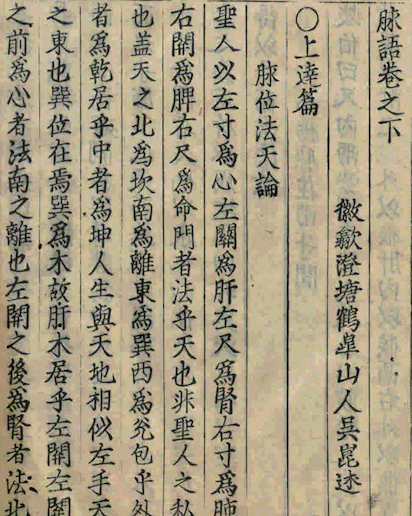 脉語卷之下
徽歙澄塘鶴皐山人吳崑述
〇上達篇
脉位法天論
聖人以左寸爲心左關爲肝左尺爲腎右寸爲肺
右關爲脾右尺爲命門者法乎天也非聖人之私
也盖天之北爲坎南爲離東爲巽西爲兊包乎外
者爲乾居乎中者爲坤人生與天地相似左手天
之東也巽位在焉巽爲木故肝木居乎左關左關
之前爲心者法南之離也左關之後爲腎者法北